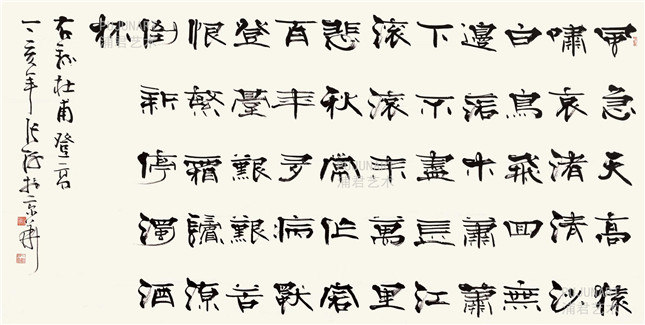 風急天高猿
嘯哀渚清沙
白鳥飛回無
邊落木蕭蕭
下不盡長江
滾滾來萬里
悲秋常作客
百年多病獨
登臺艱難苦
恨繁霜鬢潦
倒新停濁酒
杯
右錄杜甫登高
丁亥年於京華